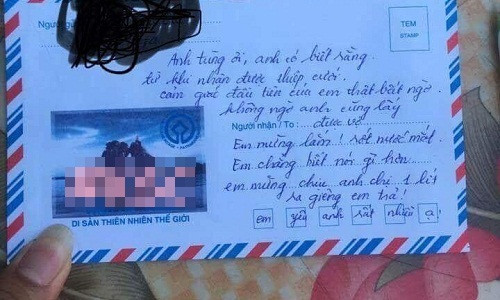 Người gửi
TEM
STAMP
Anh Tùng ơi, anh có biết rằng
từ khi nhận được thiếp cưới.
cảm giác đầu tiên của em thật bất ngờ
không ngờ anh cũng lấy
Người nhận / To : được vợ
Em mừng lắm ! rớt nước mắt.
Em chẳng biết nói gì hơn
em mừng chúc anh chị 1 lít
ra giêng em trả!
DI SẢN THIÊN NHIÊN THẾ GIỚI
em yêu anh rất nhiều ạ!